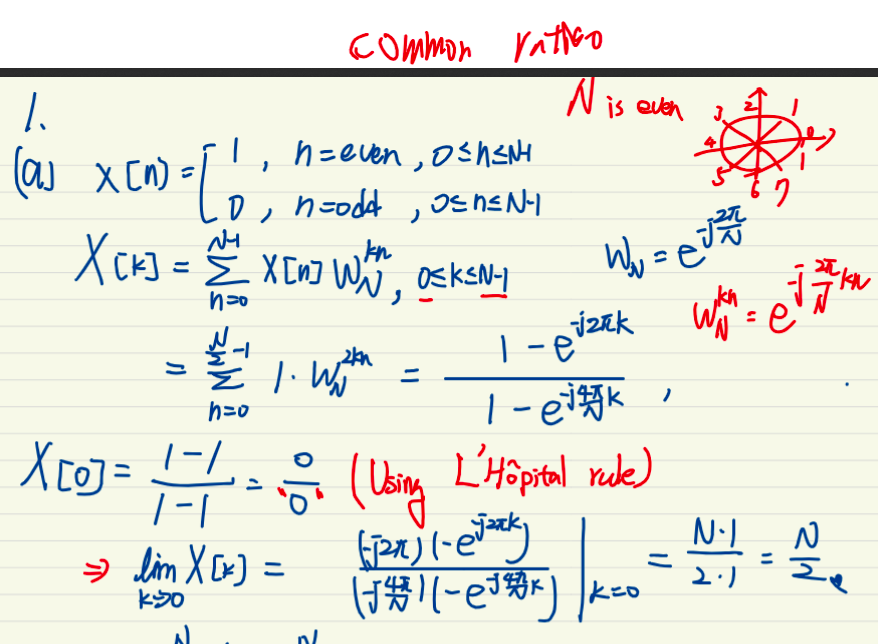 common ratio
N is even
3 2 1 4 0 1 5 6 7
1.
(a) x[n] = [ 1 , n=even , 0≤n≤N-1
0 , n=odd , 0≤n≤N-1
X[k] = Σ_{n=0}^{N-1} x[n] W_N^{kn} , 0≤k≤N-1
W_N = e^{-j\frac{2π}{N}}
W_N^{kn} = e^{-j\frac{2π}{N}kn}
= Σ_{n=0}^{\frac{N}{2}-1} 1·W_N^{2kn} = \frac{1-e^{-j2πk}}{1-e^{-j\frac{4π}{N}k}} ,
X[0] = \frac{1-1}{1-1} = \frac{0}{0} (Using L'Hôpital rule)
⇒ lim_{k→0} X[k] = \frac{(-j2π)(-e^{-j2πk})}{(-j\frac{4π}{N})(-e^{-j\frac{4π}{N}k})} |_{k=0} = \frac{N·1}{2·1} = \frac{N}{2}